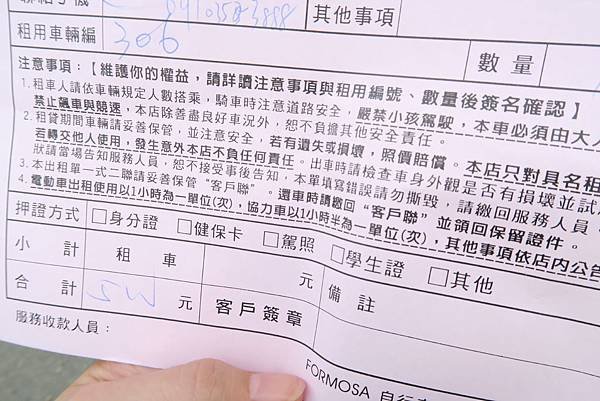 聯絡手機
其他事項
租用車輛編 306
數量
注意事項：【維護你的權益，請詳讀注意事項與租用編號、數量後簽名確認】
1. 租車人請依車輛規定人數搭乘，騎車時注意道路安全，嚴禁小孩駕駛，本車必須由大人
禁止飆車與競速，本店除善盡良好車況外，恕不負擔其他安全責任。
2. 租賃期間車輛請妥善保管，並注意安全，若有遺失或損壞，照價賠償。本店只對具名租
若轉交他人使用，發生意外本店不負任何責任。出車時請檢查車身外觀是否有損壞並試
狀請當場告知服務人員，恕不接受事後告知，本單填寫錯誤請勿撕毀，請繳回服務人員，
3. 本出租單一式二聯請妥善保管“客戶聯”。還車時請繳回“客戶聯”並領回保留證件。
4. 電動車出租使用以1小時為一單位(次)，協力車以1小時半為一單位(次)，其他事項依店內公告
押證方式 □身分證 □健保卡 □駕照 □學生證 □其他
小計 租車 元 備註
合計 元 客戶簽章
服務收款人員：
FORMOSA 自行